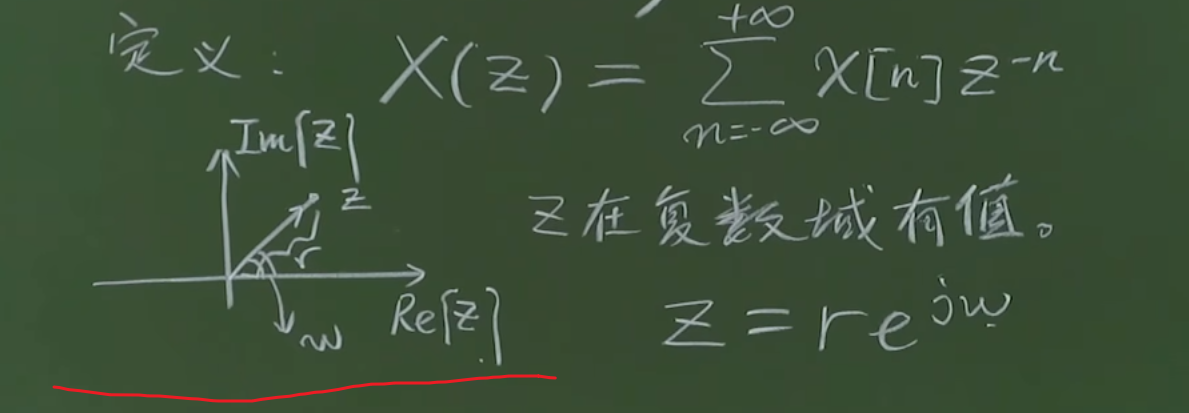 定义: X(z) = \sum_{n=-∞}^{+∞} x[n] z^{-n}
Im[z]
z
r
w
Re[z]
z在复数域有值。
z = r e^{jw}